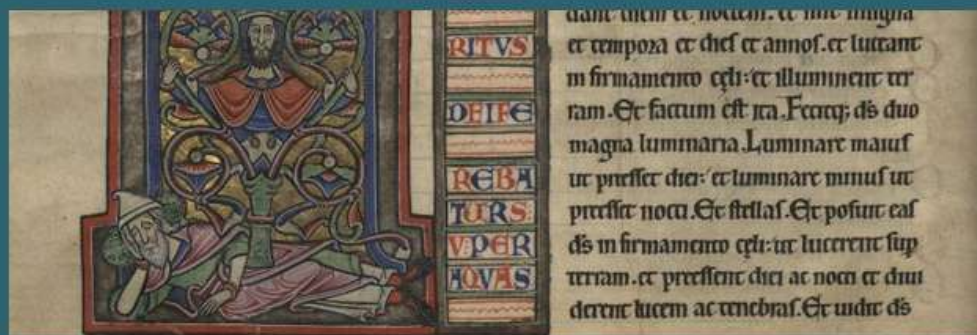 RITVS
DEIFE
REBA
TURS
V:PER
AQVAS
dant diem et noctem. et sint in signa
et tempora et dies et annos. et luceant
in firmamento cęli: et illuminent ter
ram. Et factum est ita. Fecitq; ds duo
magna luminaria. Luminare maius
ut preesset diei: et luminare minus ut
preesset nocti. Et stellas. Et posuit eas
ds in firmamento cęli: ut lucerent sup
terram. et preessent diei ac nocti et diui
derent lucem ac tenebras. Et uidit ds